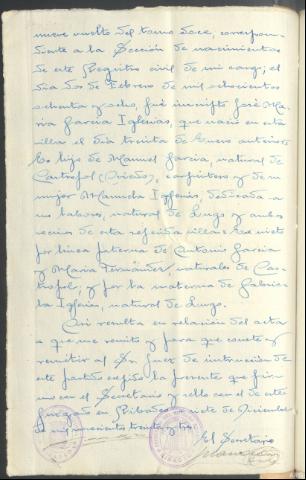 nueve vuelto del tomo doce, correspon-
diente a la Sección de nacimientos
de este Registro civil de mi cargo, el
dia dos de Febrero de mil ochocientos
ochenta y ocho, fué inscripto José Ma-
ria Garcia Iglesias, que nació en esta
villa el dia treinta de Enero anterior
Es hijo de Manuel Garcia, natural de
Castropol (Oviedo), carpintero y de su
mujer Manuela Iglesias, dedicada a
sus labores, natural de Lugo y ambos
vecinos de esta referida villa. Es nieto
por linea paterna de Antonio Garcia
y Maria Fernández, naturales de Cas-
tropol, y por la materna de Gabrie-
la Iglesias, natural de Lugo.
Asi resulta en relación del acta
a que me remito y para que conste y
remitir al Sr. Juez de instrucción de
este partido expido la presente que fir-
mo con el Secretario y sello con el de este
Juzgado en Ribadeo a siete de Diciembre
de mil novecientos treinta y
El Secretario